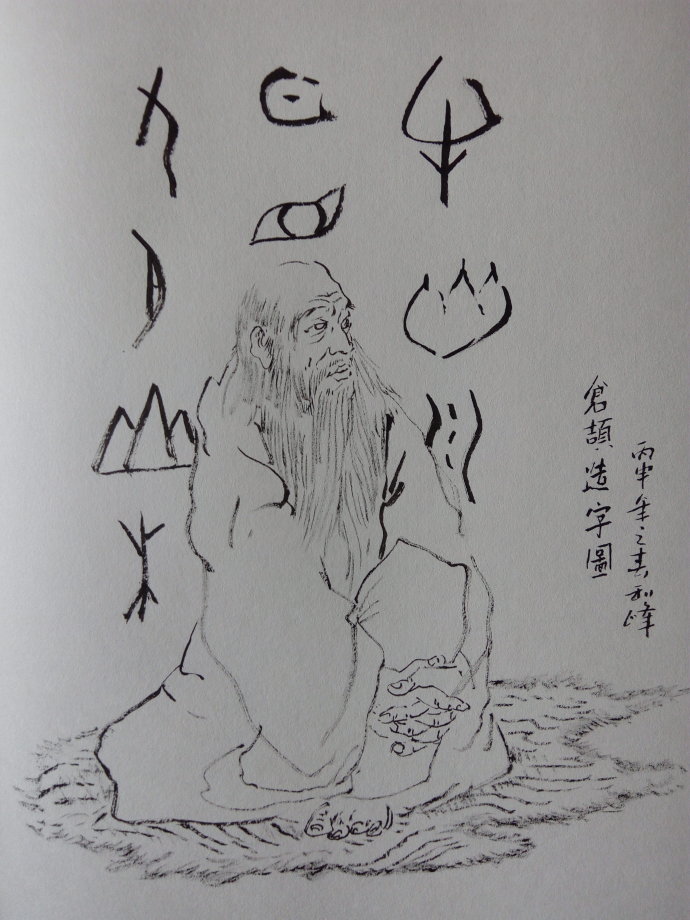 倉頡造字圖
丙申年之春和峰